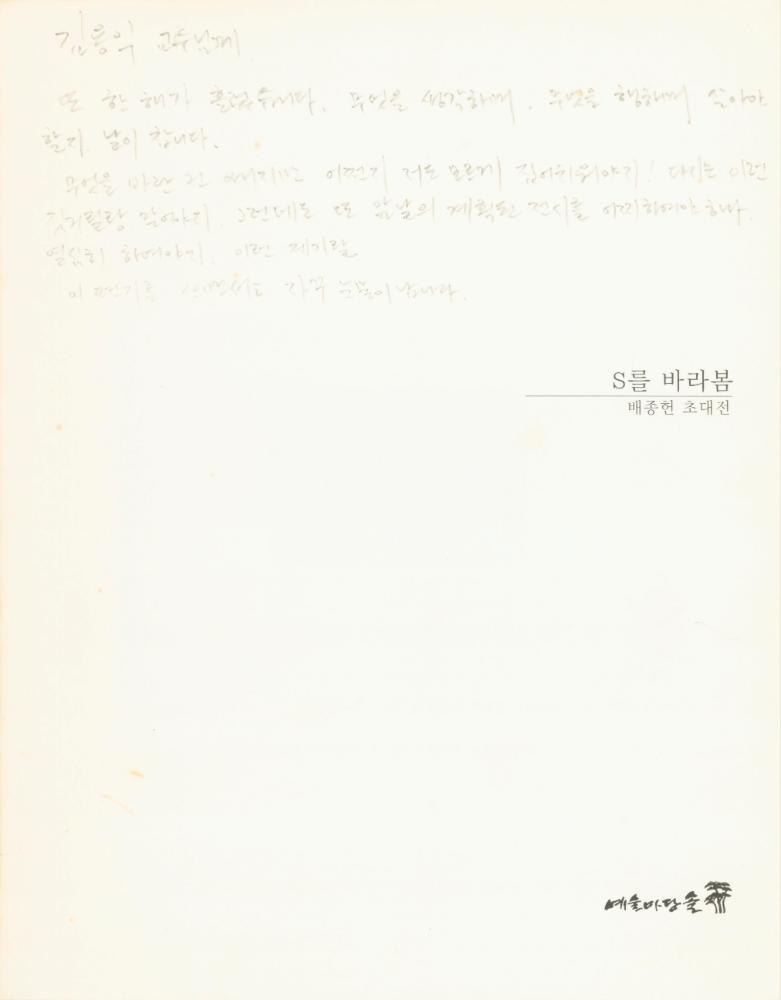 김용익 교수님께
또 한 해가 흘렀습니다. 무엇을 생각하며, 무엇을 행하며 살아야
할지. 날이 찹니다.
무엇을 바란 건 아니지만 어쩐지 저도 모르게 집어치워야지! 다시는 이런
짓거릴랑 말아야지. 그런데도 또 앞날의 계획된 전시를 어찌하여야 하나.
열심히 하여야지. 이런 제기랄
이 편지를 쓰면서도 자꾸 눈물이 납니다.
S를 바라봄
배종헌 초대전
예술마당 솔